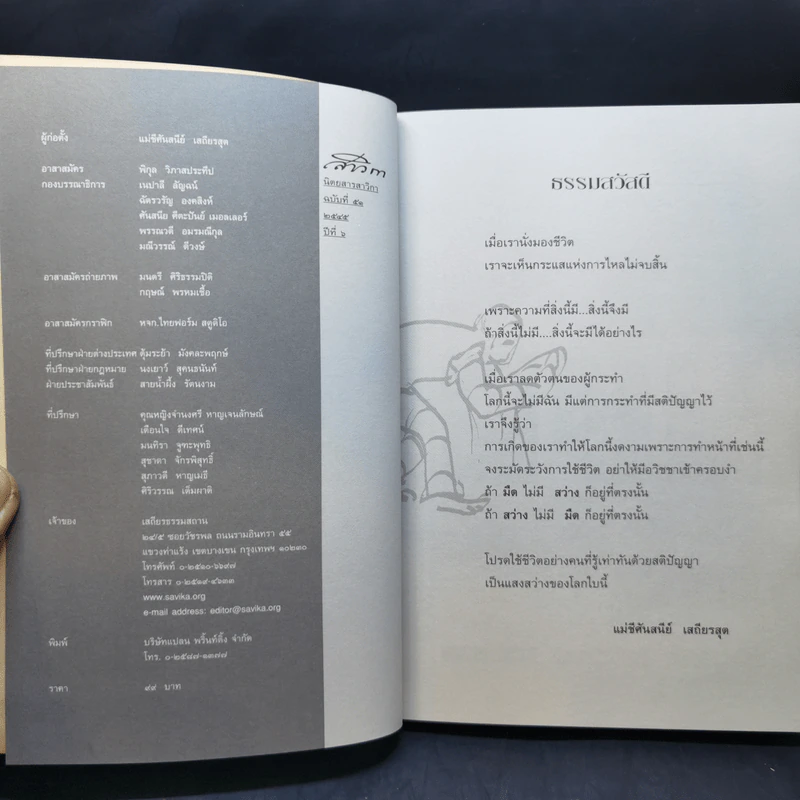 ผู้ก่อตั้ง แม่ชีศันสนีย์ เสถียรสุต
อาสาสมัคร พิกุล วิภาสประทีป
กองบรรณาธิการ เนปาลี ลัญฉน์
ฉัตรวรัญ องคสิงห์
ศันสนีย ตีตะปันย์ เมอลเลอร์
พรรณวดี อมรมณีกุล
มณีวรรณ์ ตีวงษ์
อาสาสมัครถ่ายภาพ มนตรี ศิริธรรมปิติ
กฤษณ์ พรหมเชื้อ
อาสาสมัครกราฟิก หจก.ไทยฟอร์ม สตูดิโอ
ที่ปรึกษาฝ่ายต่างประเทศ ตุ้มระย้า มังคละพฤกษ์
ที่ปรึกษาฝ่ายกฎหมาย นงเยาว์ สุคนธนันท์
ฝ่ายประชาสัมพันธ์ สายน้ำผึ้ง รัตนงาม
ที่ปรึกษา คุณหญิงจำนงศรี หาญเจนลักษณ์
เตือนใจ ดีเทศน์
มนทิรา จูฑะพุทธิ
สุชาดา จักรพิสุทธิ์
สุภาวดี หาญเมธี
ศิริวรรณ เต็มผาติ
เจ้าของ เสถียรธรรมสถาน
๒๔/๕ ซอยวัชรพล ถนนรามอินทรา ๕๕
แขวงท่าแร้ง เขตบางเขน กรุงเทพฯ ๑๐๒๓๐
โทรศัพท์ ๐-๒๕๑๐-๖๖๙๗
โทรสาร ๐-๒๕๑๙-๔๖๓๓
www.savika.org
e-mail address: editor@savika.org
พิมพ์ บริษัทแปลน พริ้นท์ติ้ง จำกัด
โทร. ๐-๒๕๘๗-๑๓๗๗
ราคา ๙๙ บาท
สาวิกา
นิตยสารสาวิกา
ฉบับที่ ๕๑
๒๕๔๕
ปีที่ ๖
ธรรมสวัสดี
เมื่อเรานั่งมองชีวิต
เราจะเห็นกระแสแห่งการไหลไม่จบสิ้น
เพราะความที่สิ่งนี้มี...สิ่งนี้จึงมี
ถ้าสิ่งนี้ไม่มี....สิ่งนี้จะมีได้อย่างไร
เมื่อเราลดตัวตนของผู้กระทำ
โลกนี้จะไม่มีฉัน มีแต่การกระทำที่มีสติปัญญาไว้
เราจึงรู้ว่า
การเกิดของเราทำให้โลกนี้งดงามเพราะการทำหน้าที่เช่นนี้
จงระมัดระวังการใช้ชีวิต อย่าให้มือวิชชาเข้าครอบงำ
ถ้า มืด ไม่มี สว่าง ก็อยู่ที่ตรงนั้น
ถ้า สว่าง ไม่มี มืด ก็อยู่ที่ตรงนั้น
โปรดใช้ชีวิตอย่างคนที่รู้เท่าทันด้วยสติปัญญา
เป็นแสงสว่างของโลกใบนี้
แม่ชีศันสนีย์ เสถียรสุต